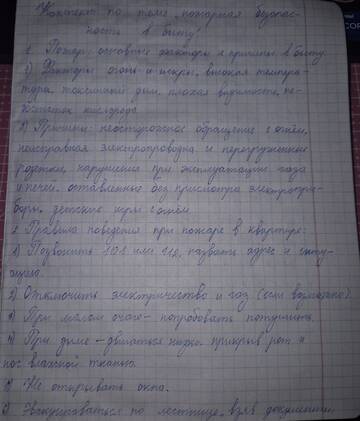 Конспект по теме „пожарная безопас-
ность в быту"
1. Пожар: основные факторы и причины в быту
1) Факторы: огонь и искры, высокая темпера-
тура, токсичный дым, плохая видимость, не-
достаток кислорода
2) Причины: неосторожное обращение с огнём,
неисправная электропроводка и перегруженные
розетки, нарушения при эксплуатации газа
и печей, оставленные без присмотра электропри-
боры, детские игры с огнём.
2. Правила поведения при пожаре в квартире:
1) Позвонить 101 или 112, назвать адрес и ситу-
ацию.
2) Отключить электричество и газ (если возможно)
3) При малом очаге - попробовать потушить.
4) При дыме - двигаться низко, прикрыв рот и
нос влажной тканью.
5) Не открывать окна.
6) Эвакуироваться по лестнице, взяв документы